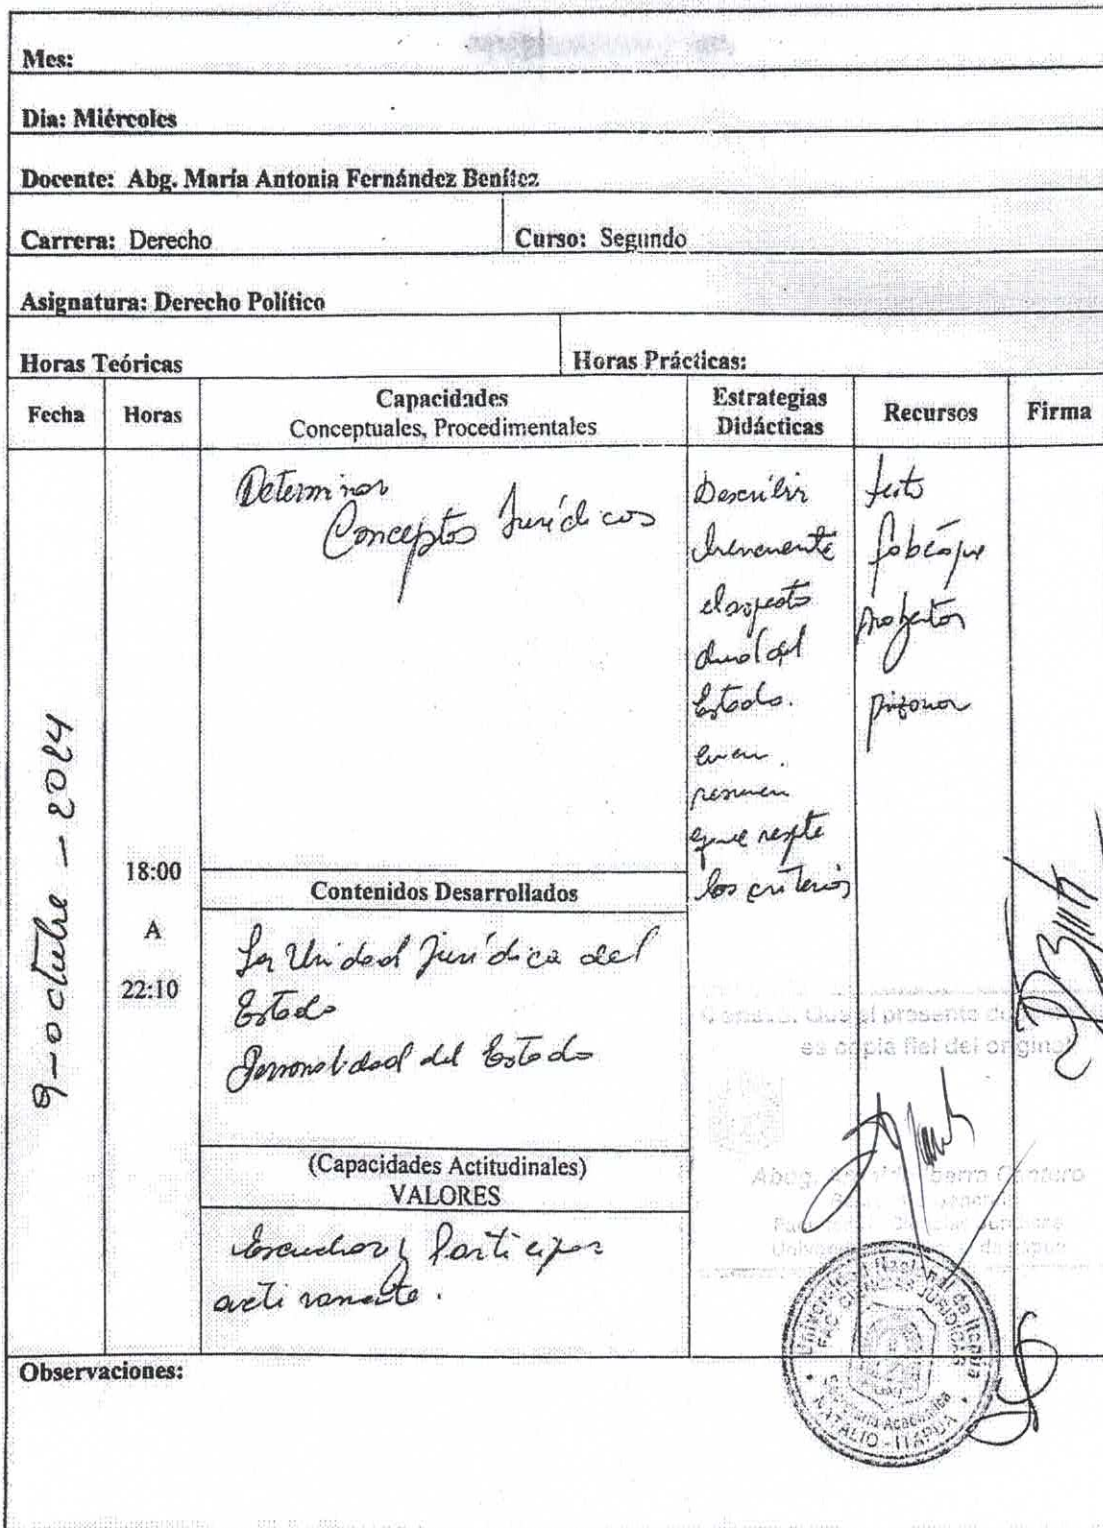 Mes:
Dia: Miércoles
Docente: Abg. María Antonia Fernández Benítez
Carrera: Derecho Curso: Segundo
Asignatura: Derecho Político
Horas Teóricas Horas Prácticas:
Fecha Horas Capacidades Conceptuales, Procedimentales Estrategias Didácticas Recursos Firma
9-octubre-2024
18:00
A
22:10
Determinar
Conceptos Jurídicos
Describir
brevemente
el aspecto
dual del
Estado.
en un
resumen
que respete
los criterios
texto
pizarra
Contenidos Desarrollados
La Unidad Jurídica del
Estado
Personalidad del Estado
(Capacidades Actitudinales)
VALORES
Escuchar y Participar
activamente.
Que el presente
es copia fiel del original
Abog.
Universidad Nacional de Itapúa
FAC. CIENCIAS JURIDICAS
Secretaría Académica
NATALIO - ITAPUA
Observaciones: